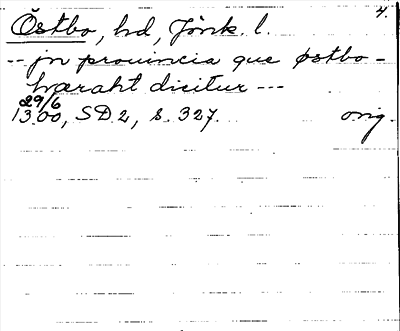 4.
Östbo, hd, Jönk. l.
-- jn prouincia que østbo-
hæraht dicitur ---
29/6
1300, SD 2, s. 327. orig.